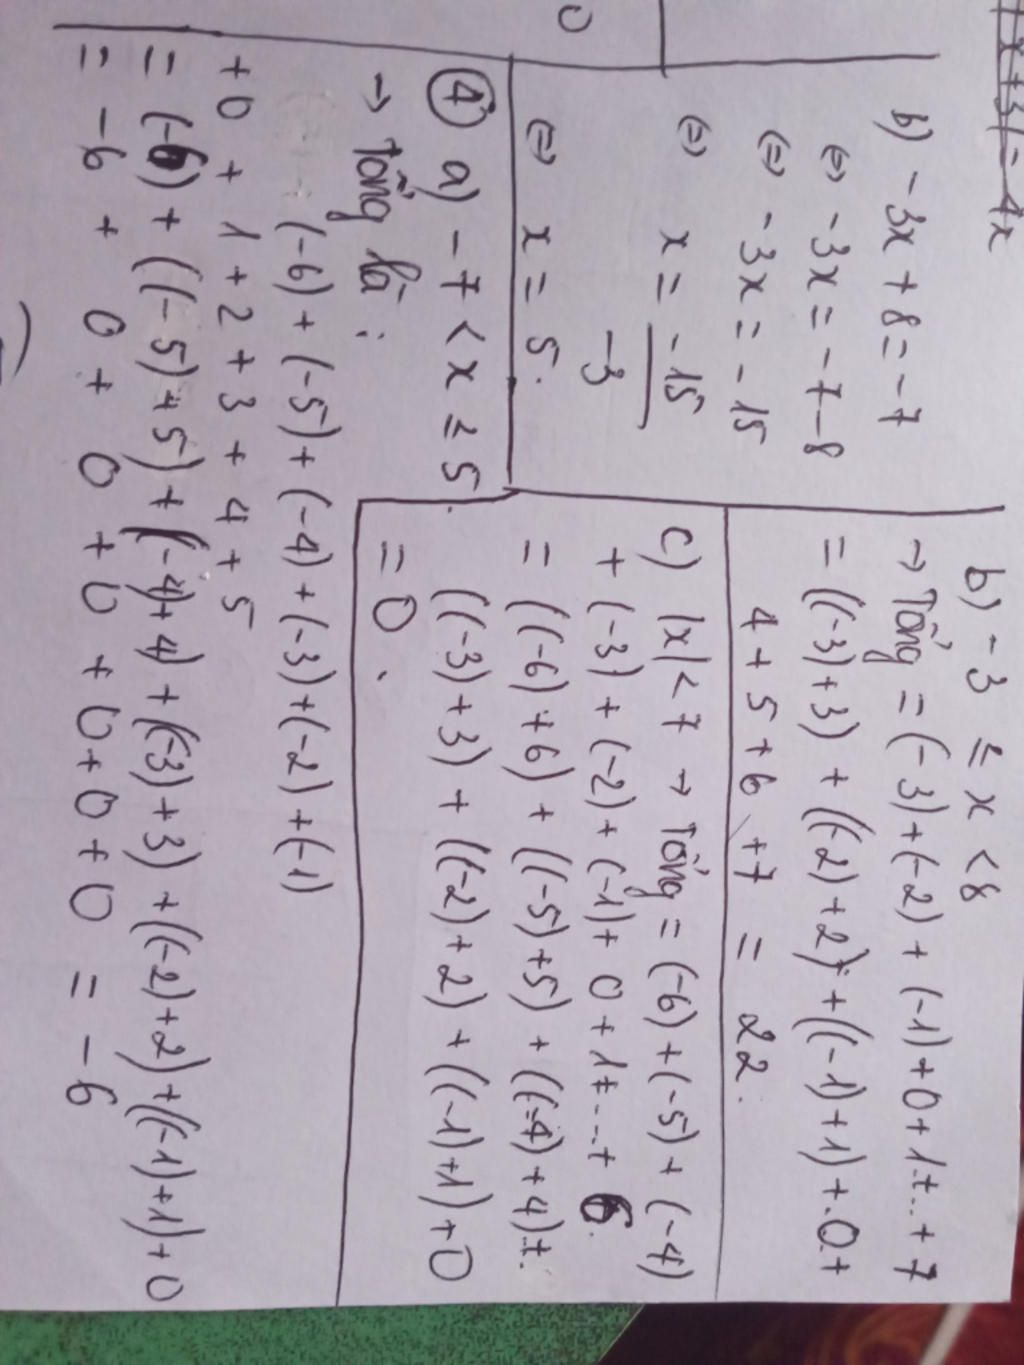 |x+3| = 4x
0
b) -3x + 8 = -7
⇔ -3x = -7-8
⇔ -3x = -15
⇔ x = -15
-3
⇔ x = 5.
④ a) -7 < x ≤ 5.
→ Tổng là :
(-6) + (-5) + (-4) + (-3) + (-2) + (-1)
+ 0 + 1 + 2 + 3 + 4 + 5
= (-6) + ((-5)+5) + (-4)+4) + (-3)+3) + ((-2)+2) + ((-1)+1)+0
= -6 + 0 + 0 + 0 + 0 + 0 + 0 = -6
b) -3 ≤ x < 8
→ Tổng = (-3) + (-2) + (-1) + 0 + 1 + .. + 7
= ((-3)+3) + ((-2)+2) + ((-1)+1) + 0 +
4 + 5 + 6 + 7 = 22.
c) |x| < 7 → Tổng = (-6) + (-5) + (-4)
+ (-3) + (-2) + (-1) + 0 + 1 + ... + 6.
= ((-6)+6) + ((-5)+5) + ((-4)+4) +
((-3)+3) + ((-2)+2) + ((-1)+1)+0
= 0 .